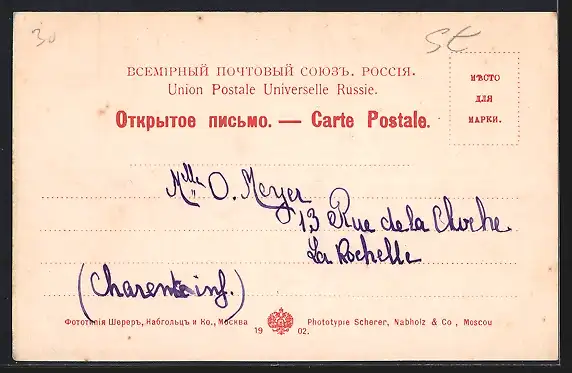 30
St
ВСЕМІРНЫЙ ПОЧТОВЫЙ СОЮЗЪ. РОССІЯ.
Union Postale Universelle Russie.
Открытое письмо. — Carte Postale.
МѢСТО
ДЛЯ
МАРКИ.
Mlle O. Meyer
13 Rue de la Cloche
La Rochelle
(Charente inf.)
Фототипія Шереръ, Набгольцъ и Ко., Москва
1902.
Phototypie Scherer, Nabholz & Co, Moscou